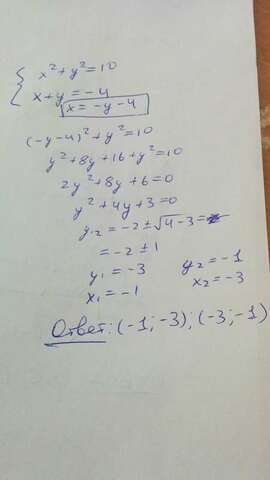 { x² + y² = 10
x + y = -4
x = -y - 4
(-y-4)² + y² = 10
y² + 8y + 16 + y² = 10
2y² + 8y + 6 = 0
y² + 4y + 3 = 0
y₁,₂ = -2 ± √4-3 =
= -2 ± 1
y₁ = -3 y₂ = -1
x₁ = -1 x₂ = -3
Ответ: (-1; -3); (-3; -1)